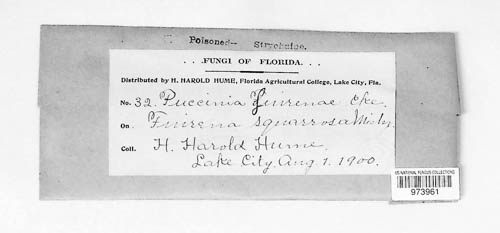 Poisoned-- Strychnine.
. . .FUNGI OF FLORIDA. . .
Distributed by H. HAROLD HUME, Florida Agricultural College, Lake City, Fla.
No. 32. Puccinia Fuirenae Cke.
On Fuirena squarrosa Michx.
Coll. H. Harold Hume,
Lake City, Aug. 1. 1900.
US NATIONAL FUNGUS COLLECTIONS
973961